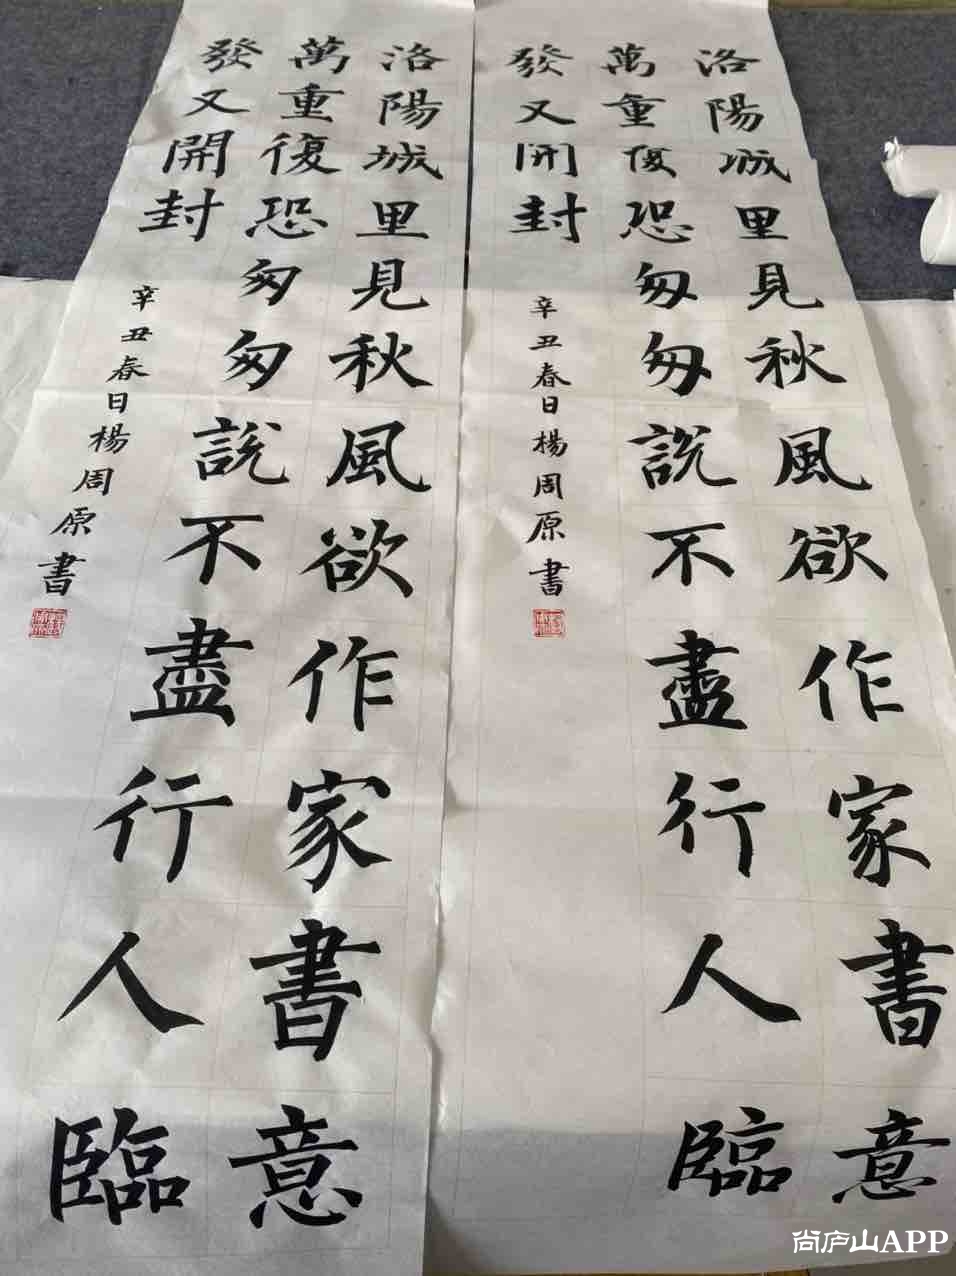 洛陽城里見秋風欲作家書意
萬重復恐匆匆說不盡行人臨
發又開封
辛丑春日楊周原書
洛陽城里見秋風欲作家書意
萬重復恐匆匆說不盡行人臨
發又開封
辛丑春日楊周原書
尚庐山APP